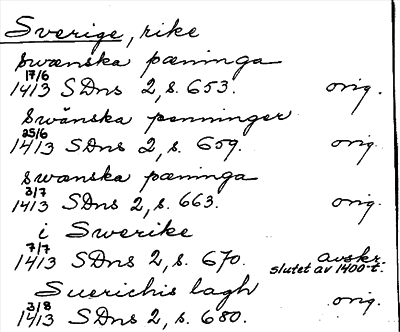 Sverige, rike
swænska pæninga
17/6
1413 SDns 2, s. 653. orig.
Swänska penninger
25/6
1413 SDns 2, s. 659. orig.
swænska pæninga
3/7
1413 SDns 2, s. 663. orig.
i Swerike
7/7
1413 SDns 2, s. 670. avskr. slutet av 1400-t.
Suerichis lagh
3/8
1413 SDns 2, s. 680. orig.